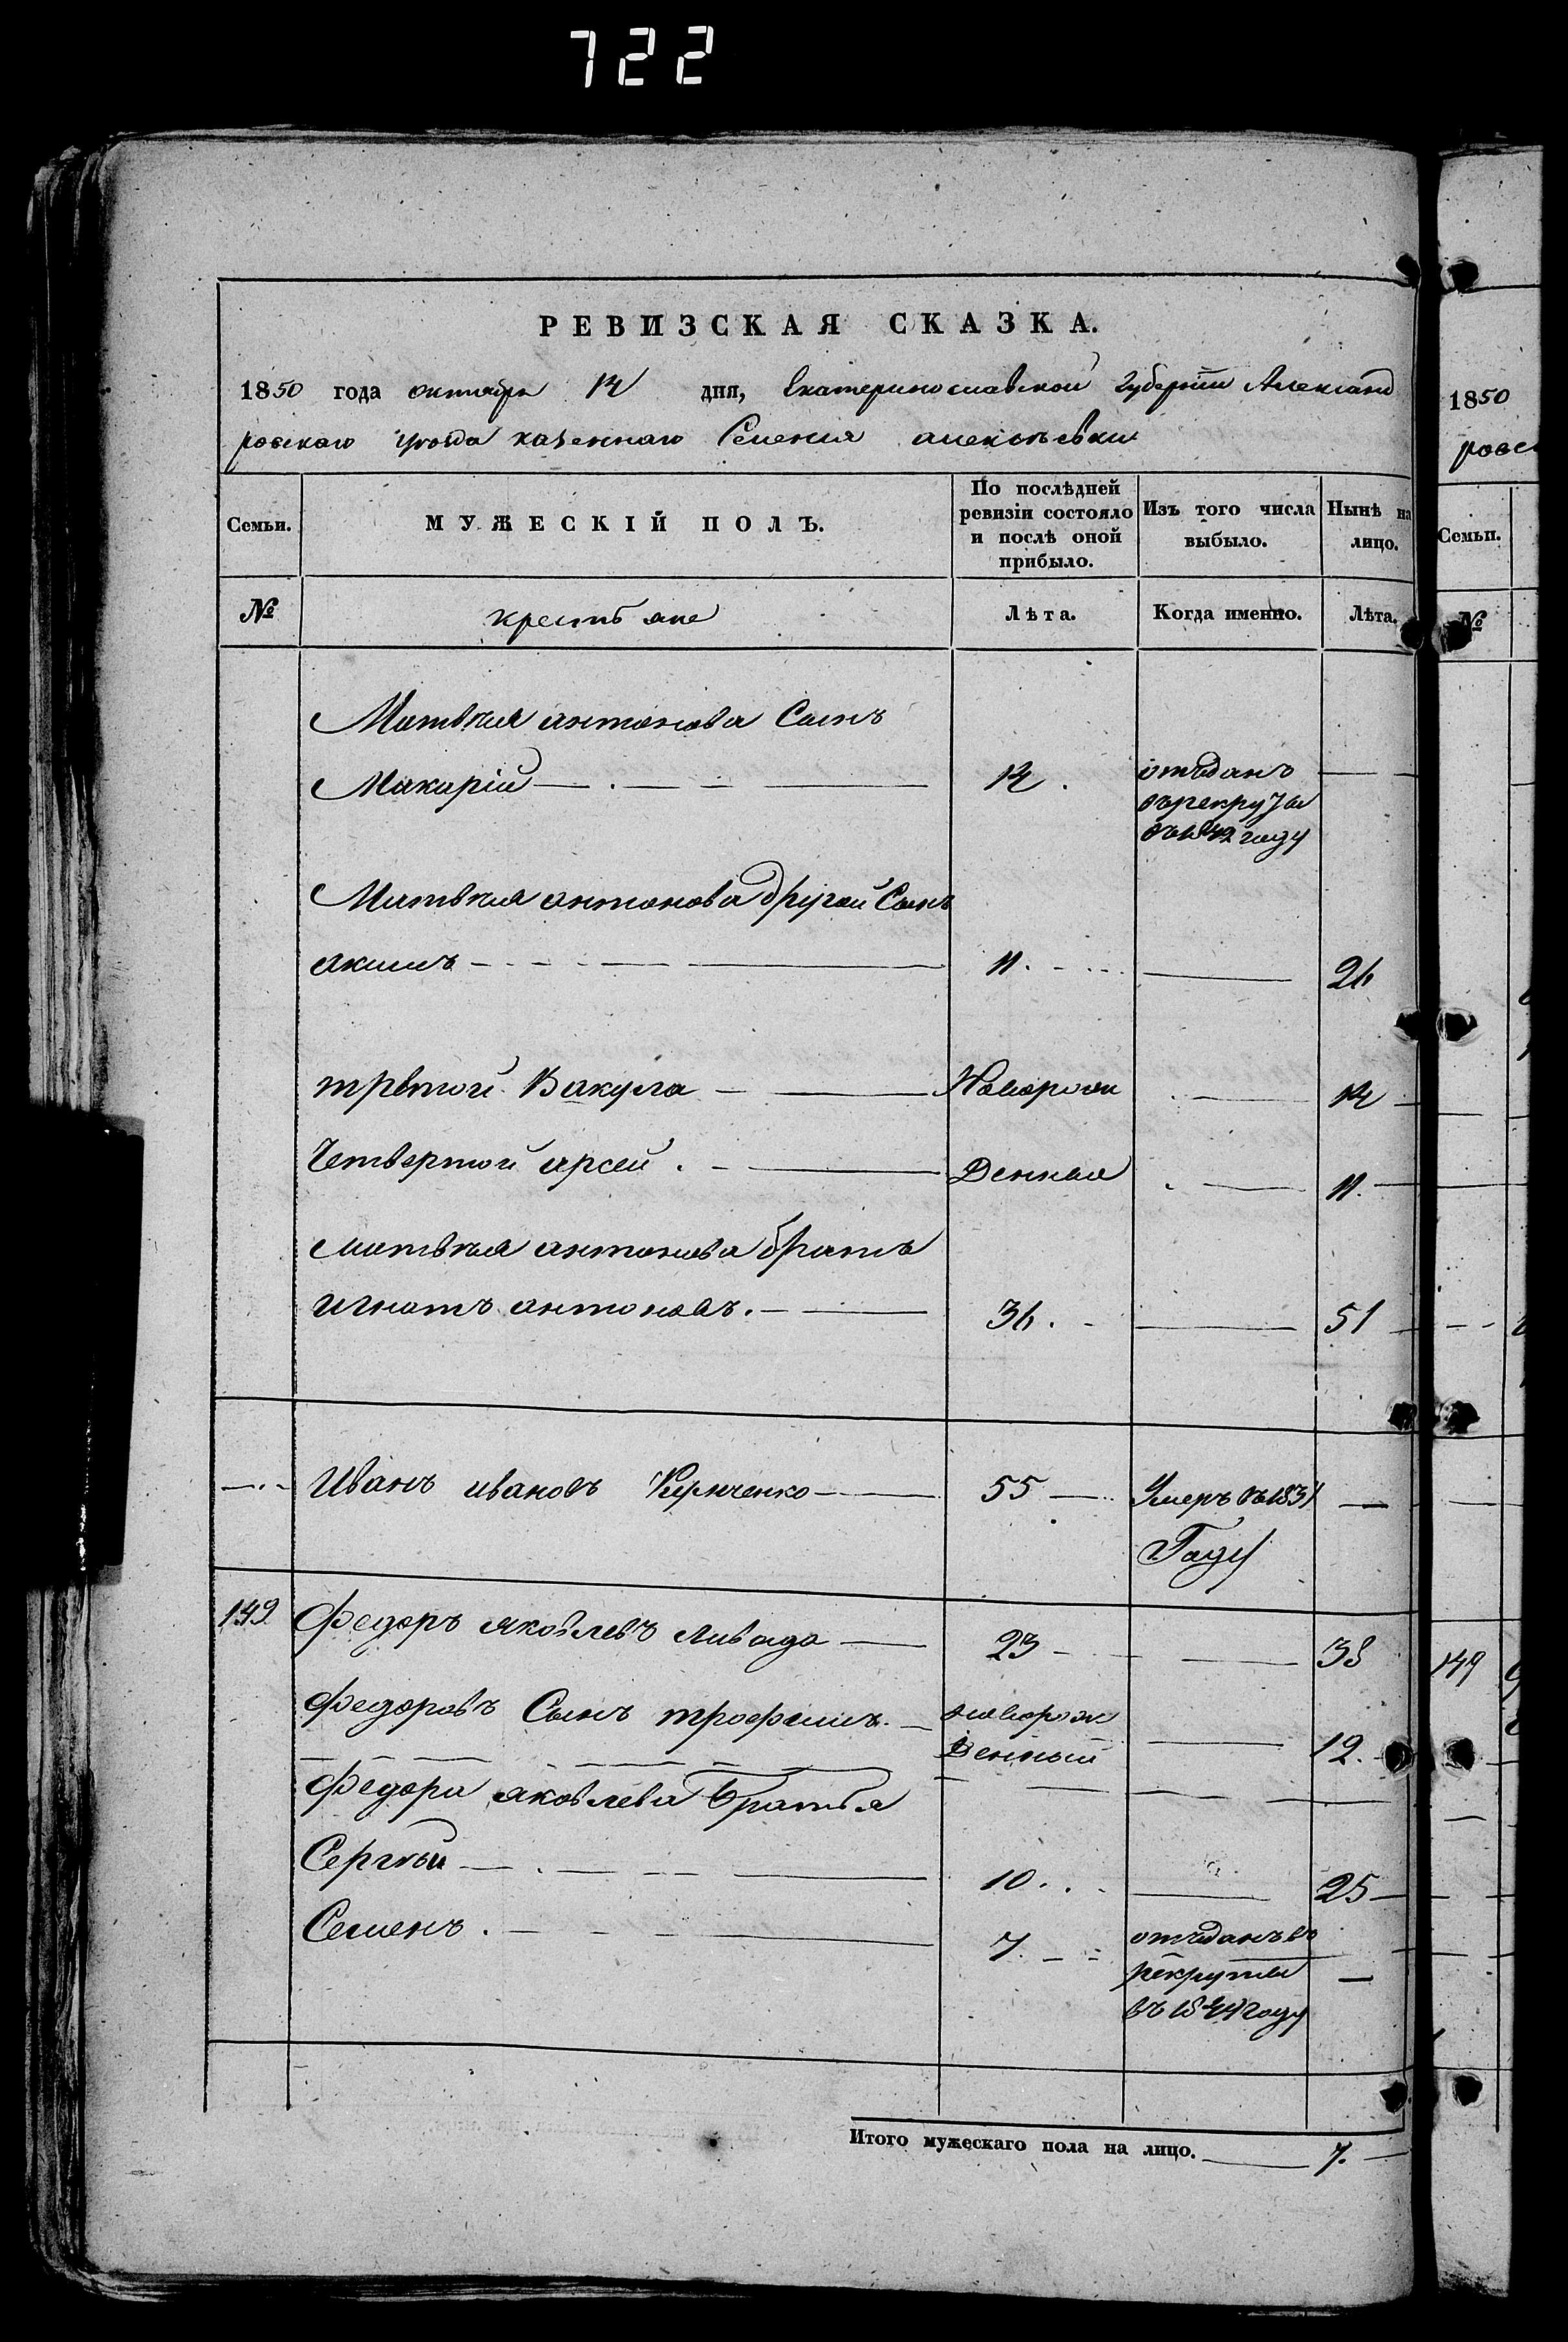 722
РЕВИЗСКАЯ СКАЗКА.
1850 года октября 14 дня, Екатеринославской губерніи Александ
ровскаго уезда казеннаго Селенія алексѣевки
Семьи.
МУЖЕСКІЙ ПОЛЪ.
По послѣдней ревизіи состояло и послѣ оной прибыло.
Изъ того числа выбыло.
Нынѣ на лицо.
№
крестьяне
Лѣта.
Когда именно.
Лѣта.
Матвея антонова Сынъ
Макарій 14. отъданъ
въ рекруты
въ 1842 году
Матвея антонова другой Сынъ
акимъ 11. 26
третой Вакула Новорож 14
Четвертой арсей. Денныя 11.
матвея антонова братъ
игнатъ антоновъ. 36. 51
Иванъ ивановъ 55 Умеръ въ 1831
Году
149 Федоръ яковлевъ ливада 23 38
Федоровъ Сынъ трофимъ. новорож
Денный 12.
Федора яковлева Братья
Сергѣй 10. 25
Семенъ. 7 отъданъ въ
рекруты
въ 1844 году
Итого мужескаго пола на лицо. 7.
1850
ровск
Семьи.
№
149